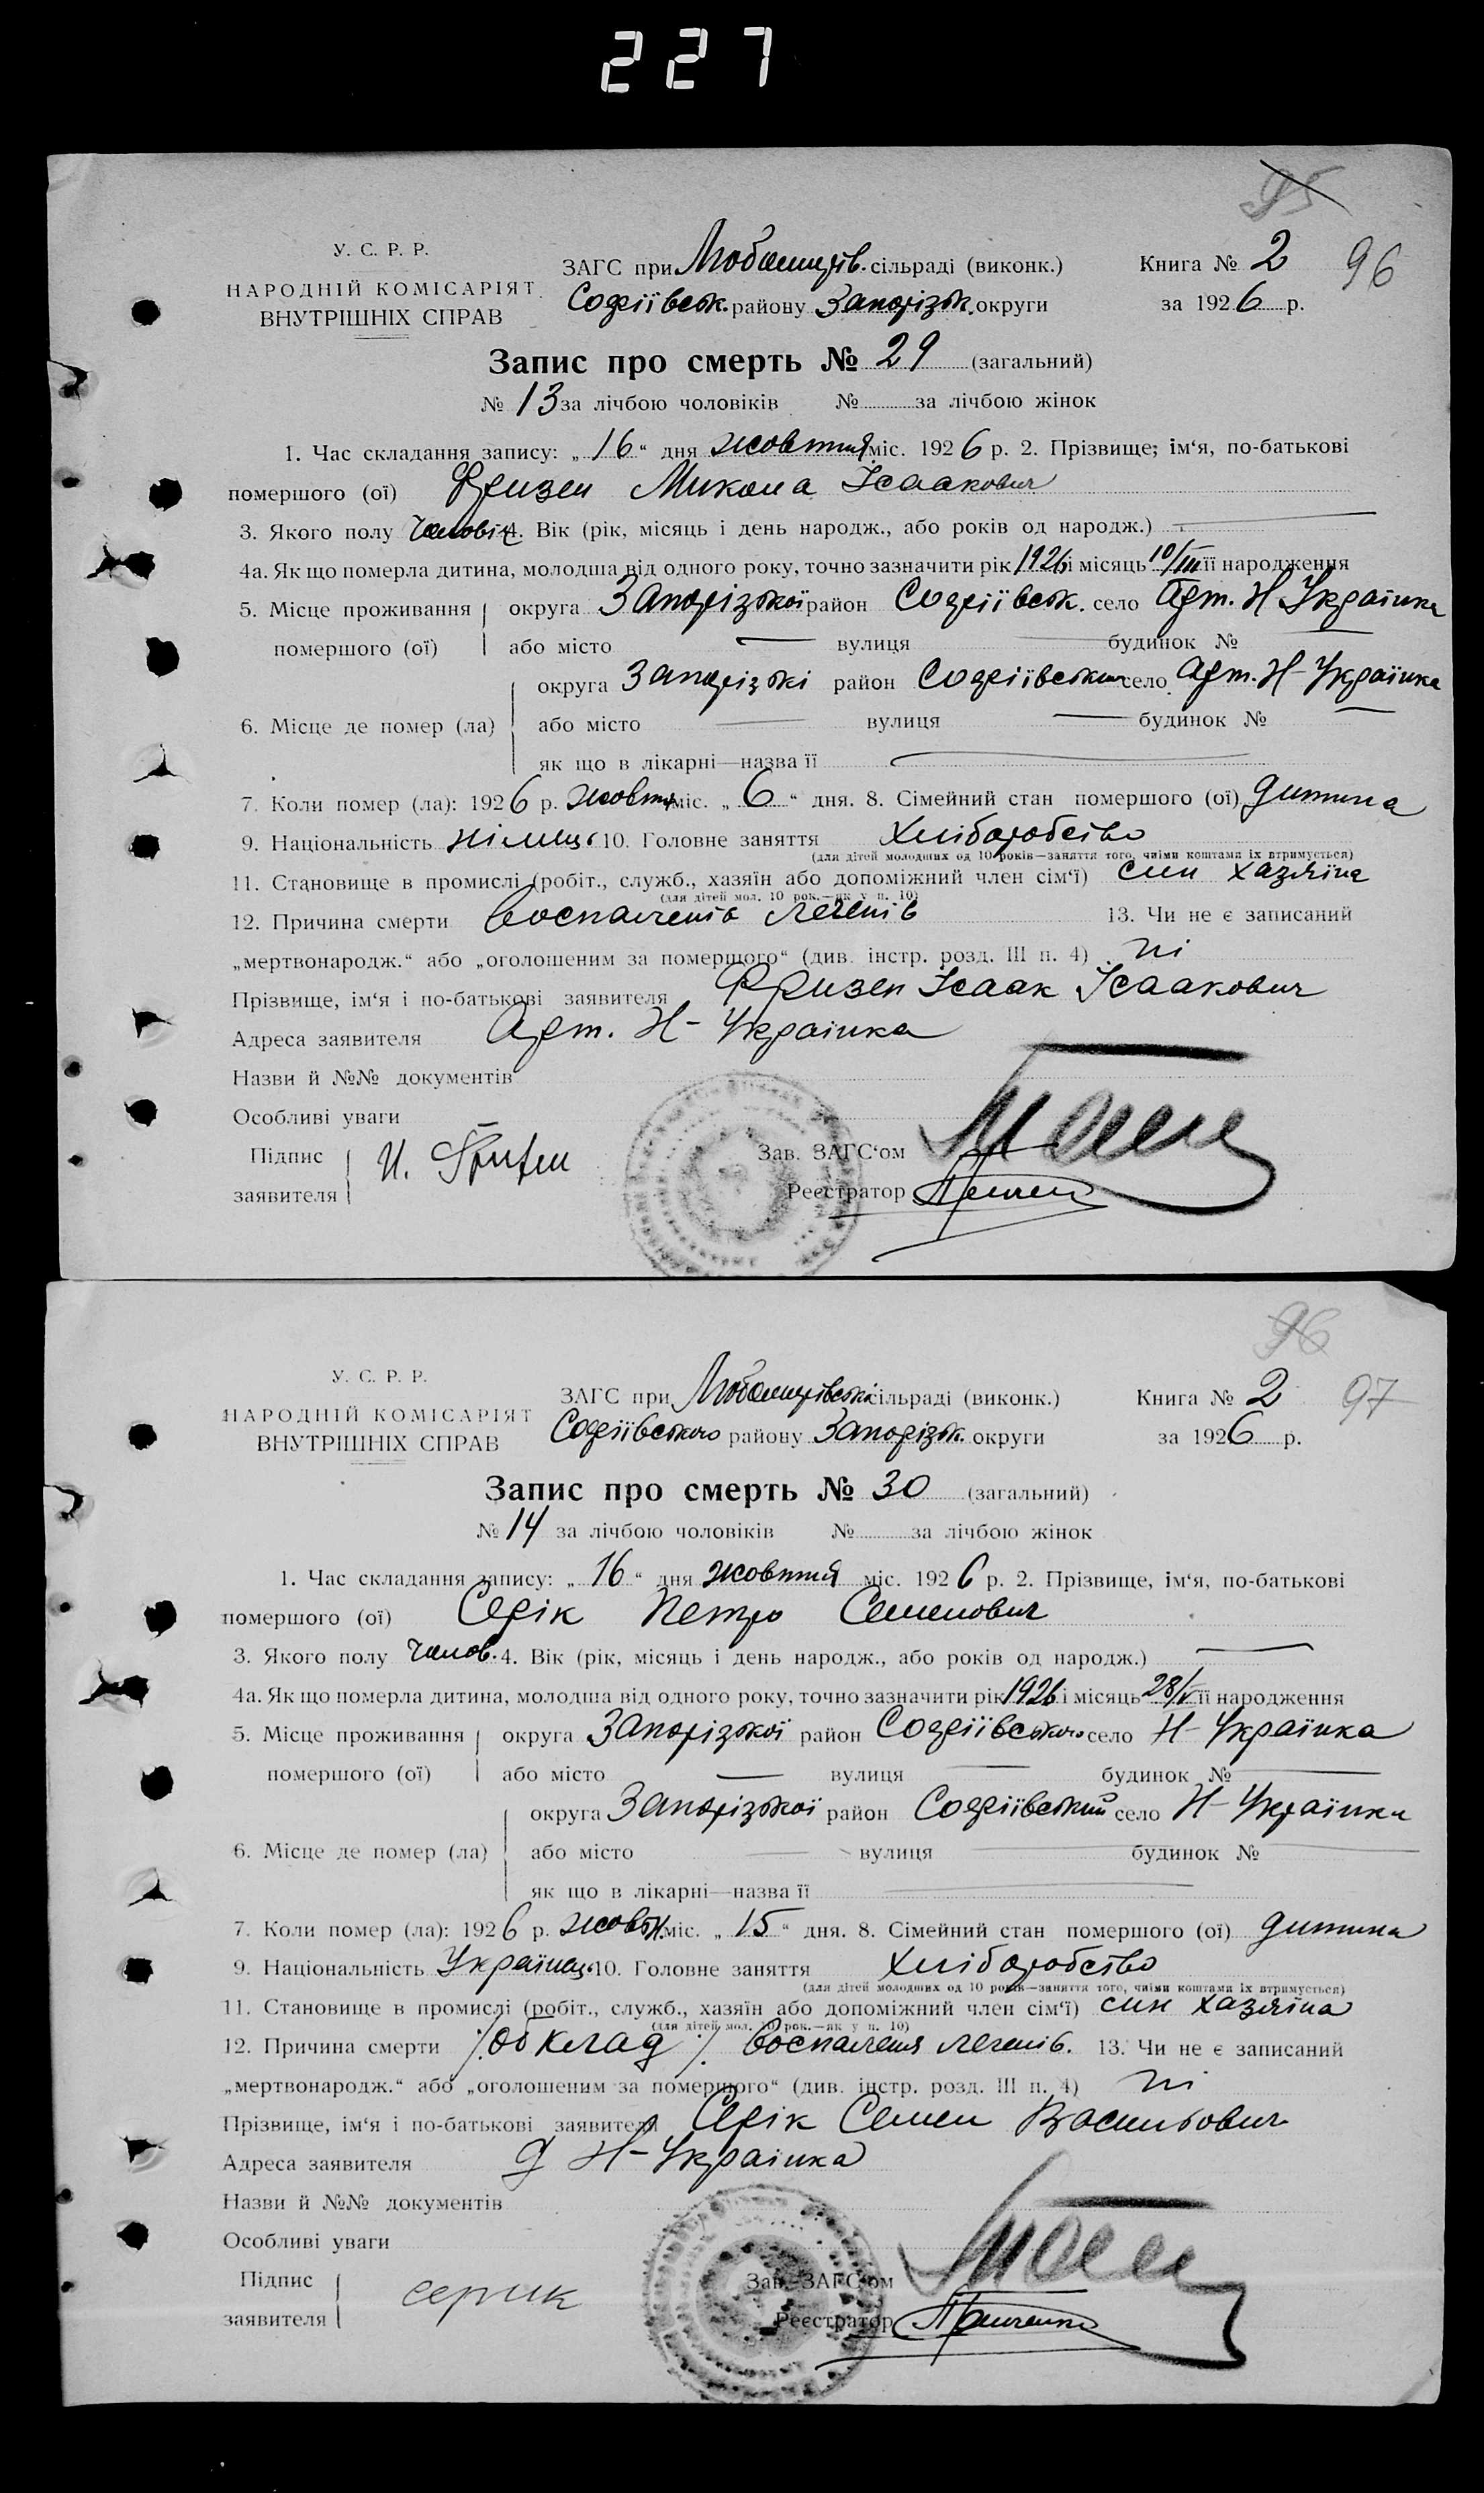 227
95
У. С. Р. Р.
НАРОДНІЙ КОМІСАРІЯТ
ВНУТРІШНІХ СПРАВ
ЗАГС при Любомирів. сільраді (виконк.)
Софіївськ. району Запорізьк. округи
Книга № 2
96
за 1926 р.
Запис про смерть № 29 (загальний)
№ 13 за лічбою чоловіків № за лічбою жінок
1. Час складання запису: „16“ дня жовтня міс. 1926 р. 2. Прізвище; ім‘я, по-батькові
помершого (ої) Фризен Микола Ісаакович
3. Якого полу Чоловіч 4. Вік (рік, місяць і день народж., або років од народж.) —
4а. Як що померла дитина, молодша від одного року, точно зазначити рік 1926 і місяць 10/III її народження
5. Місце проживання округа Запорізької район Софіївськ. село Арт. Н Українка
помершого (ої) або місто — вулиця — будинок № —
округа Запорізькі район Софіївський село Арт. Н-Українка
6. Місце де помер (ла) або місто — вулиця — будинок № —
як що в лікарні—назва її —
7. Коли помер (ла): 1926 р. жовтн міс. „6“ дня. 8. Сімейний стан помершого (ої) дитина
9. Національність німець 10. Головне заняття Хліборобство
(для дітей молодших од 10 років—заняття того, чиїми коштами їх втримується)
11. Становище в промислі (робіт., служб., хазяїн або допоміжний член сім‘ї) син хазяїна
(для дітей мол. 10 рок.—як у п. 10)
12. Причина смерти воспаленія легенів 13. Чи не є записаний
„мертвонародж.“ або „оголошеним за помершого“ (див. інстр. розд. III п. 4) ні
Прізвище, ім‘я і по-батькові заявителя Фризен Ісаак Ісаакович
Адреса заявителя Арт. Н-Українка
Назви й №№ документів
Особливі уваги
Підпис
заявителя
Зав. ЗАГС‘ом
Реєстратор
96
У. С. Р. Р.
НАРОДНІЙ КОМІСАРІЯТ
ВНУТРІШНІХ СПРАВ
ЗАГС при Любомирівські сільраді (виконк.)
Софіївського району Запорізьк. округи
Книга № 2
97
за 1926 р.
Запис про смерть № 30 (загальний)
№ 14 за лічбою чоловіків № за лічбою жінок
1. Час складання запису: „16“ дня жовтня міс. 1926 р. 2. Прізвище, ім‘я, по-батькові
помершого (ої) Серік Петро Семенович
3. Якого полу Чолов. 4. Вік (рік, місяць і день народж., або років од народж.) —
4а. Як що померла дитина, молодша від одного року, точно зазначити рік 1926 і місяць 28/V її народження
5. Місце проживання округа Запорізької район Софіївського село Н-Українка
помершого (ої) або місто — вулиця — будинок № —
округа Запорізької район Софіївський село Н-Українка
6. Місце де помер (ла) або місто — вулиця — будинок № —
як що в лікарні—назва її —
7. Коли помер (ла): 1926 р. жовтн. міс. „15“ дня. 8. Сімейний стан помершого (ої) дитина
9. Національність Українець 10. Головне заняття Хліборобство
(для дітей молодших од 10 років—заняття того, чиїми коштами їх втримується)
11. Становище в промислі (робіт., служб., хазяїн або допоміжний член сім‘ї) син хазяїна
(для дітей мол. 10 рок.—як у п. 10)
12. Причина смерти ∕. обклад ∕. воспаленя легенів. 13. Чи не є записаний
„мертвонародж.“ або „оголошеним за помершого“ (див. інстр. розд. III п. 4) ні
Прізвище, ім‘я і по-батькові заявителя Серік Семен Васильович
Адреса заявителя д Н-Українка
Назви й №№ документів
Особливі уваги
Підпис
заявителя серик
Зав. ЗАГС‘ом
Реєстратор